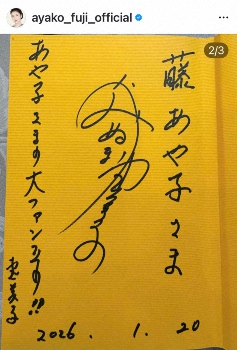 ayako_fuji_official
2/3
藤あや子さま
あや子さまの大ファンです!!
恵美子
2026. 1. 20